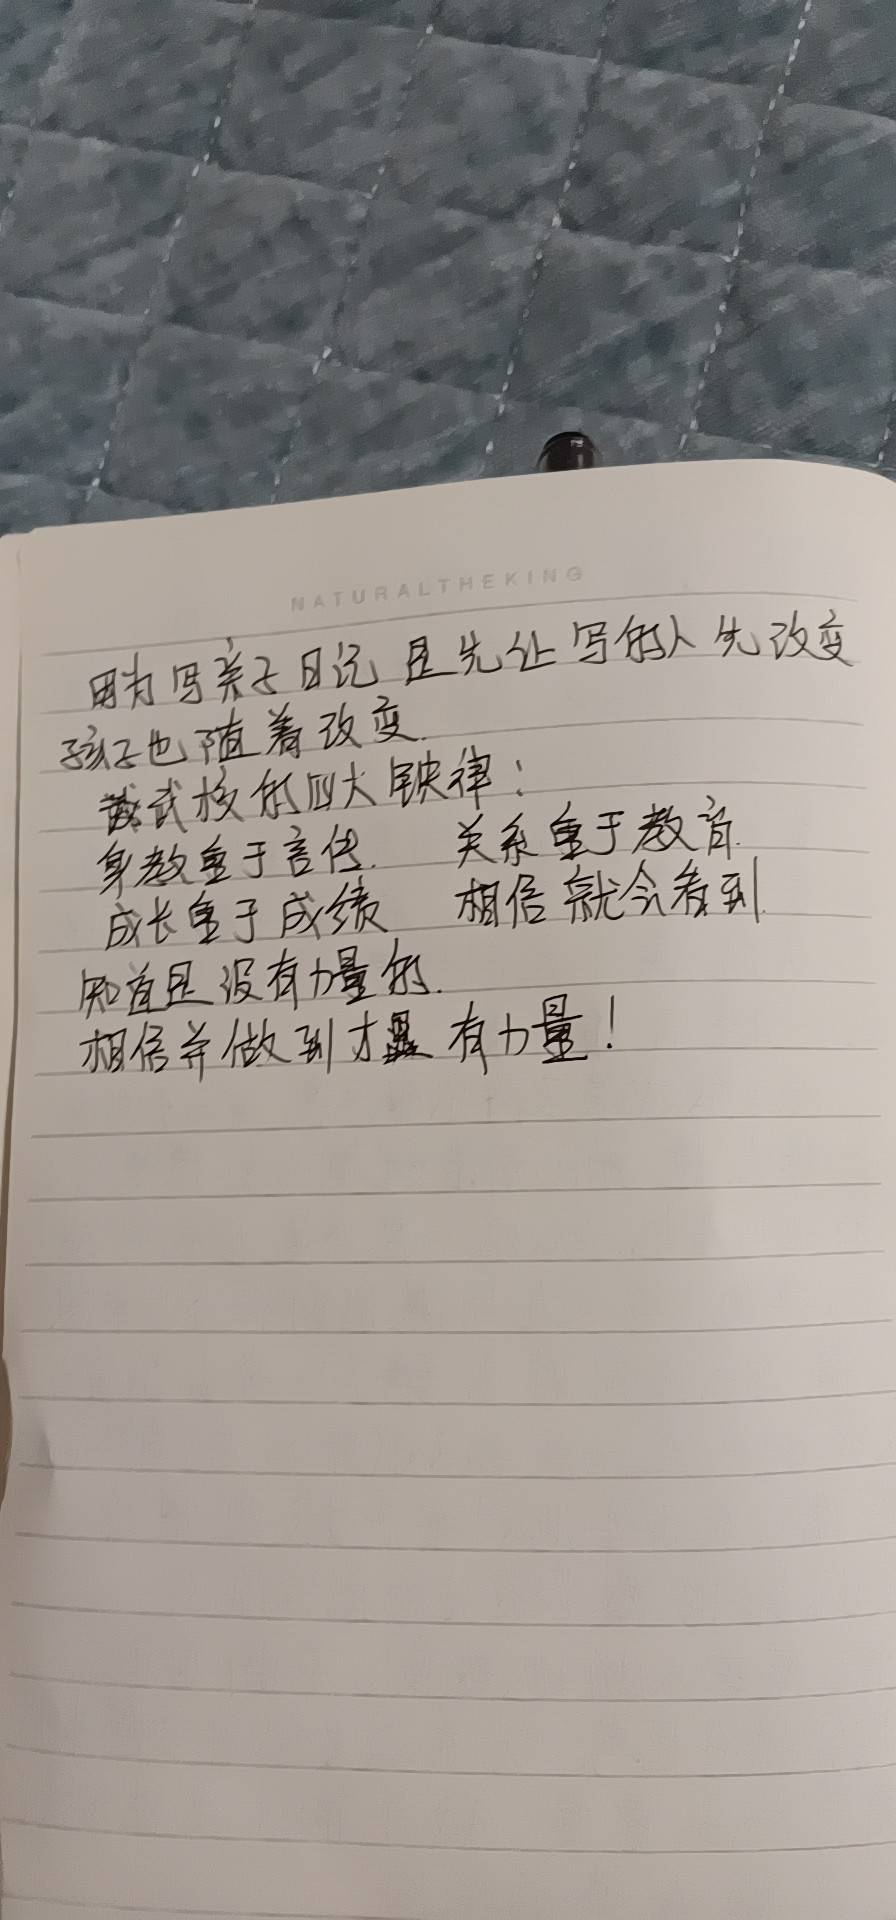 NATURALTHEKING
因为写亲子日记是先让写的人先改变
孩子也随着改变.
武校的四大铁律：
身教重于言传. 关系重于教育.
成长重于成绩 相信就会看到.
知道是没有力量的.
相信并做到才是有力量！